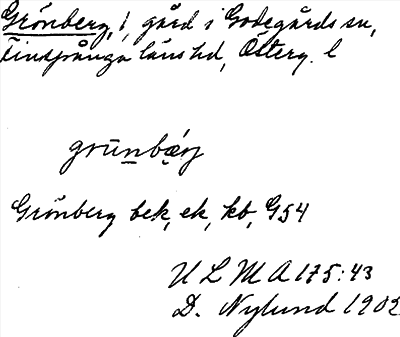 Grönberg, 1, gård i Godegårds sn,
Finspånga läns hd, Österg. l
grūnbæ̣rj
Grönberg bek, ek, kb, G54
U L M A 175:43
D. Nylund 1902